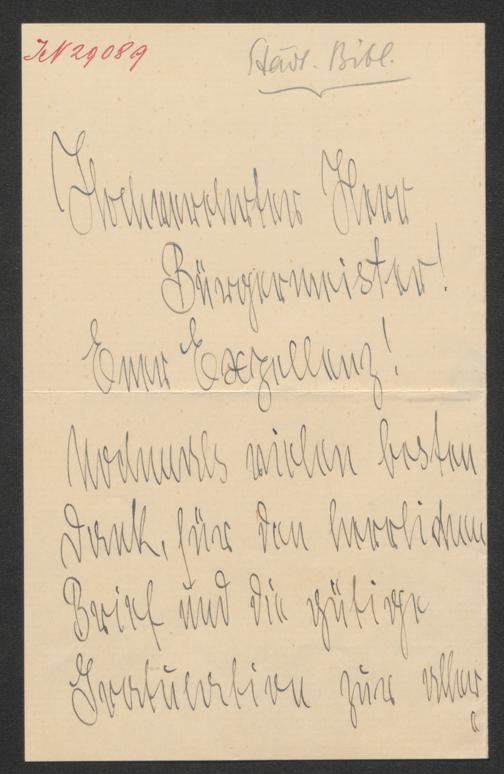 JN 29089
Städt. Bibl.
Hochverehrter Herr
Bürgermeister!
Euer Exzellenz!
Nochmals vielen besten
Dank, für den herrlichen
Brief und die gütige
Gratulation zur aller